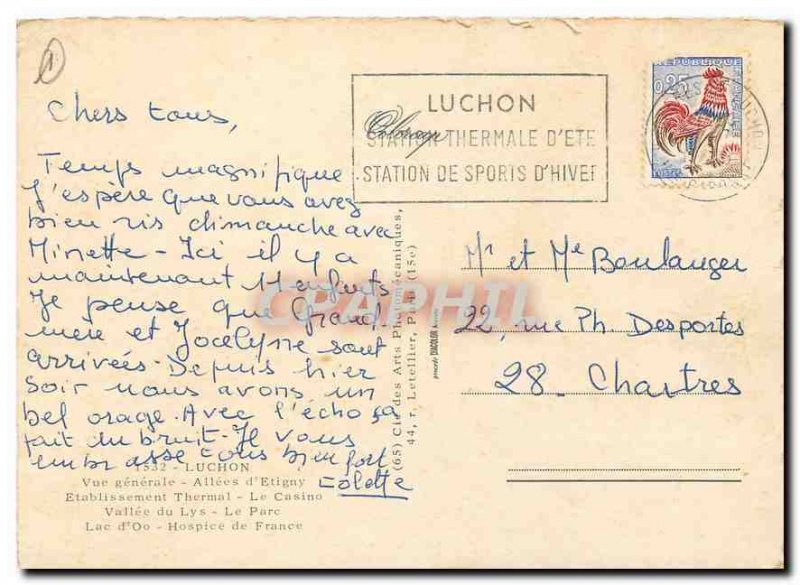 1
Chers tous,
Temps magnifique
J'espère que vous avez
bien ris dimanche avec
Minette - Ici il y a
maintenant enfants
Je pense que Grand-
mère et Jocelyne sont
arrivées. Depuis hier
soir nous avons un
bel orage. Avec l'écho ça
fait du bruit. Je vous
embrasse tous bien fort
Colette
1532 - LUCHON
Vue générale - Allées d'Etigny
Etablissement Thermal - Le Casino
Vallée du Lys - Le Parc
Lac d'Oo - Hospice de France
(65) Cie des Arts Photomécaniques,
44, r. Letellier, Paris (15e)
procédé DIACOLOR
LUCHON
STATION THERMALE D'ETE
STATION DE SPORTS D'HIVER
REPUBLIQUE FRANÇAISE
0,25
Mr et Me Boulanger
22, rue Ph. Desportes
28 - Chartres
CPAPHIL